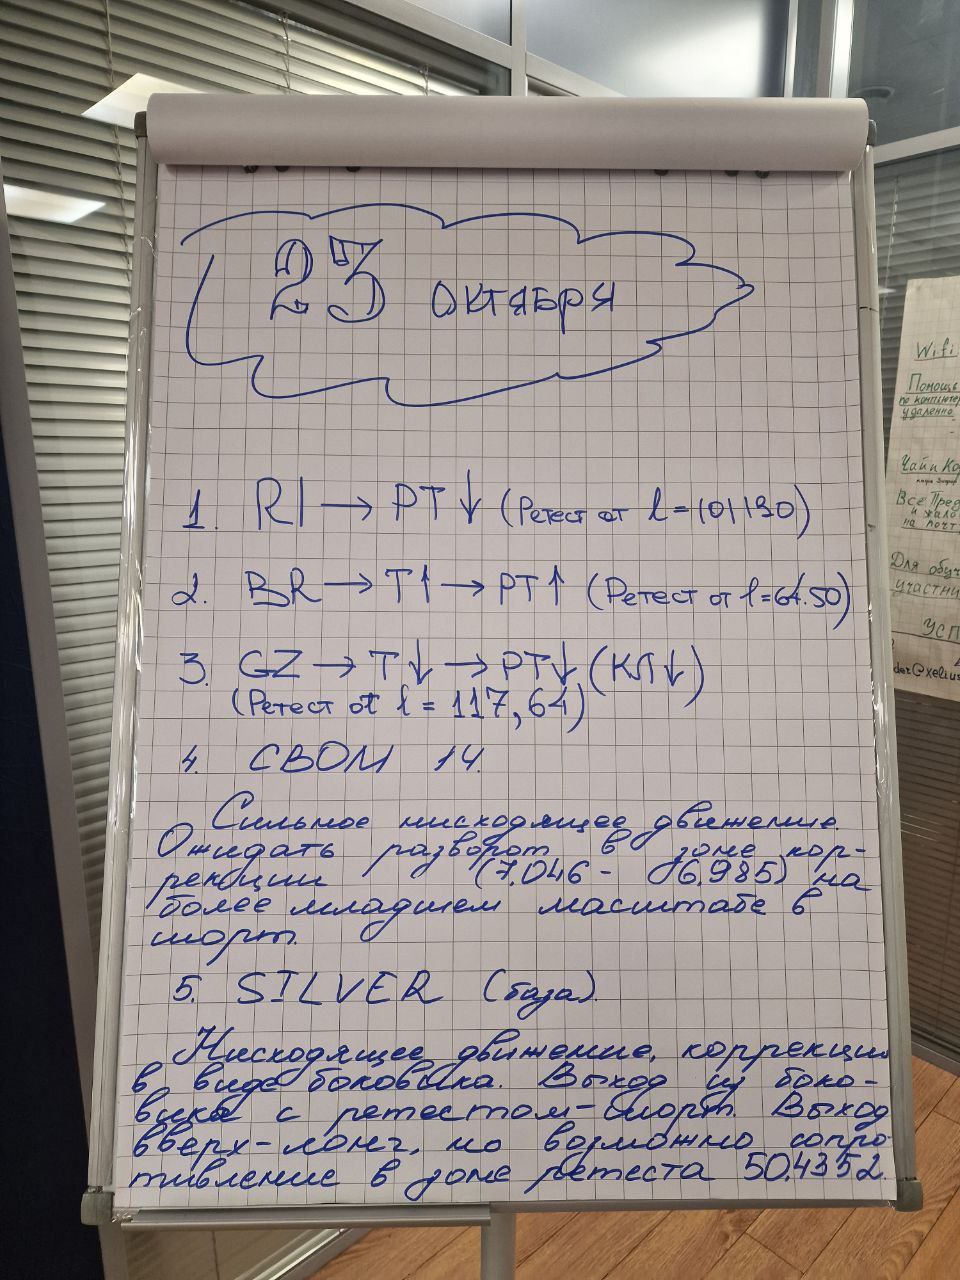 23 октября
1. RI → РТ ↓ (Ретест от l = 101130)
2. BR → Т↑ → РТ↑ (Ретест от l=64.50)
3. GZ → Т↓ → РТ↓ (КЛ↓)
(Ретест от l = 117,64)
4. СВОМ 14.
Сильное нисходящее движение.
Ожидать разворот в зоне кор-
рекции (7.046 - 6.985) на
более младшем масштабе в
шорт.
5. SILVER (база).
Нисходящее движение, коррекция
в виде боковика. Выход из боко-
вика с ретестом-шорт. Выход
вверх-лонг, но возможно сопро-
тивление в зоне ретеста 50,4352.
Wifi
Помощь
по компьютер
удаленно
Чай и Ко
Все Пред
и жало
на почт
Для обуч
участни
УСП
der@xelius